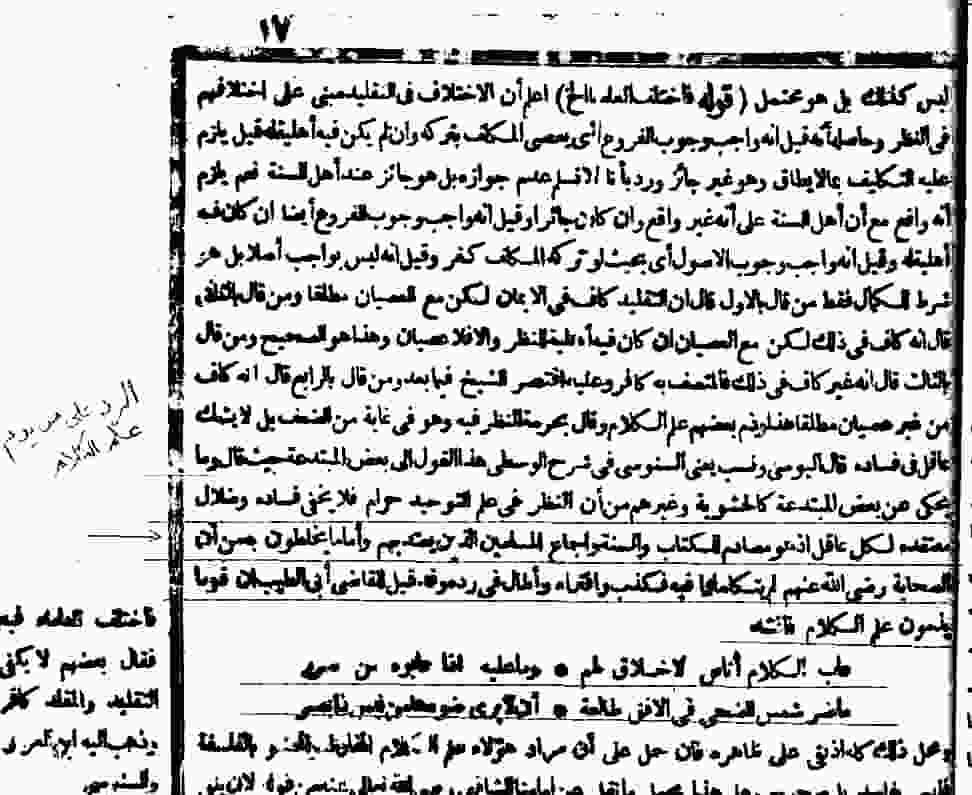 ١٧
ليس كذلك بل هو محتمل (قوله فاختلف العلماء الخ) اعلم أن الاختلاف فى التقليد مبنى على اختلافهم
فى النظر وحاصله أنه قيل انه واجب وجوب الفروع أى يعصى المكلف بتركه وان لم يكن فيه أهلية له قيل يلزم
عليه التكليف بما لا يطاق وهو غير جائز ورد بأنا لا نسلم عدم جوازه بل هو جائز عند أهل السنة نعم يلزم
أنه واقع مع أن أهل السنة على أنه غير واقع وان كان جائزا وقيل انه واجب وجوب الفروع أيضا ان كان فيه
أهلية له وقيل انه واجب وجوب الاصول أى بحيث لو تركه المكلف كفر وقيل انه ليس بواجب أصلا بل هو
شرط للكمال فقط من قال بالاول قال ان التقليد كاف فى الايمان لكن مع العصيان مطلقا ومن قال بالثانى
قال انه كاف فى ذلك لكن مع العصيان ان كان فيه أهلية النظر والا فلا عصيان وهذا هو الصحيح ومن قال
بالثالث قال انه غير كاف فى ذلك فالمتصف به كافر وعليه اقتصر الشيخ فيما بعد ومن قال بالرابع قال انه كاف
من غير عصيان مطلقا هذا وذم بعضهم علم الكلام وقال بحرمة النظر فيه وهو فى غاية من الضعف بل لا يشك
عاقل فى فساده قال اليوسى ونسب يعنى السنوسى فى شرح الوسطى هذا القول الى بعض المبتدعة حيث قال وما
يحكى عن بعض المبتدعة كالحشوية وغيرهم من أن النظر فى علم التوحيد حرام فلا يخفى فساده وضلال
معتقده لكل عاقل اذ هو مصادم للكتاب والسنة واجماع المسلمين الذين يعتد بهم وأما ما يخلطون به من أن
الصحابة رضى الله عنهم لم يتكلموا فيه فكذب وافتراء وأطال فى رده وقد قيل للقاضى أبى الطيب ان قوما
يذمون علم الكلام فانشد
عاب الكلام أناس لا خلاق لهم * وما عليه اذا عابوه من ضرر
ما ضر شمس الضحى فى الافق طالعة * أن لا يرى ضوءها من ليس ذا بصر
ومحل ذلك كله اذا بقى على ظاهره فان حمل على أن مراد هؤلاء علم الكلام المخلوط المحشو بالفلسفة
الرد على من يذم
علم الكلام
فاختلف العلماء فيه
فقال بعضهم لا يكفى
التقليد والمقلد كافر
وذهب اليه ابن العربى
والسنوسى